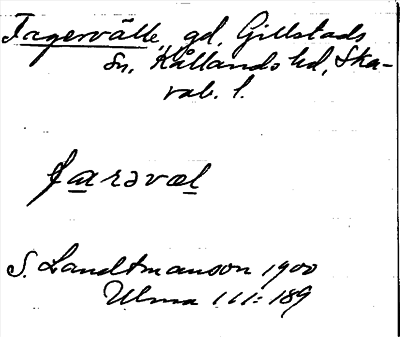 Fagervälle, gd, Gillstads
Sn, Kållands hd, Ska-
rab. l.
farəvæl
S. Landtmanson 1900
Ulma 111:189